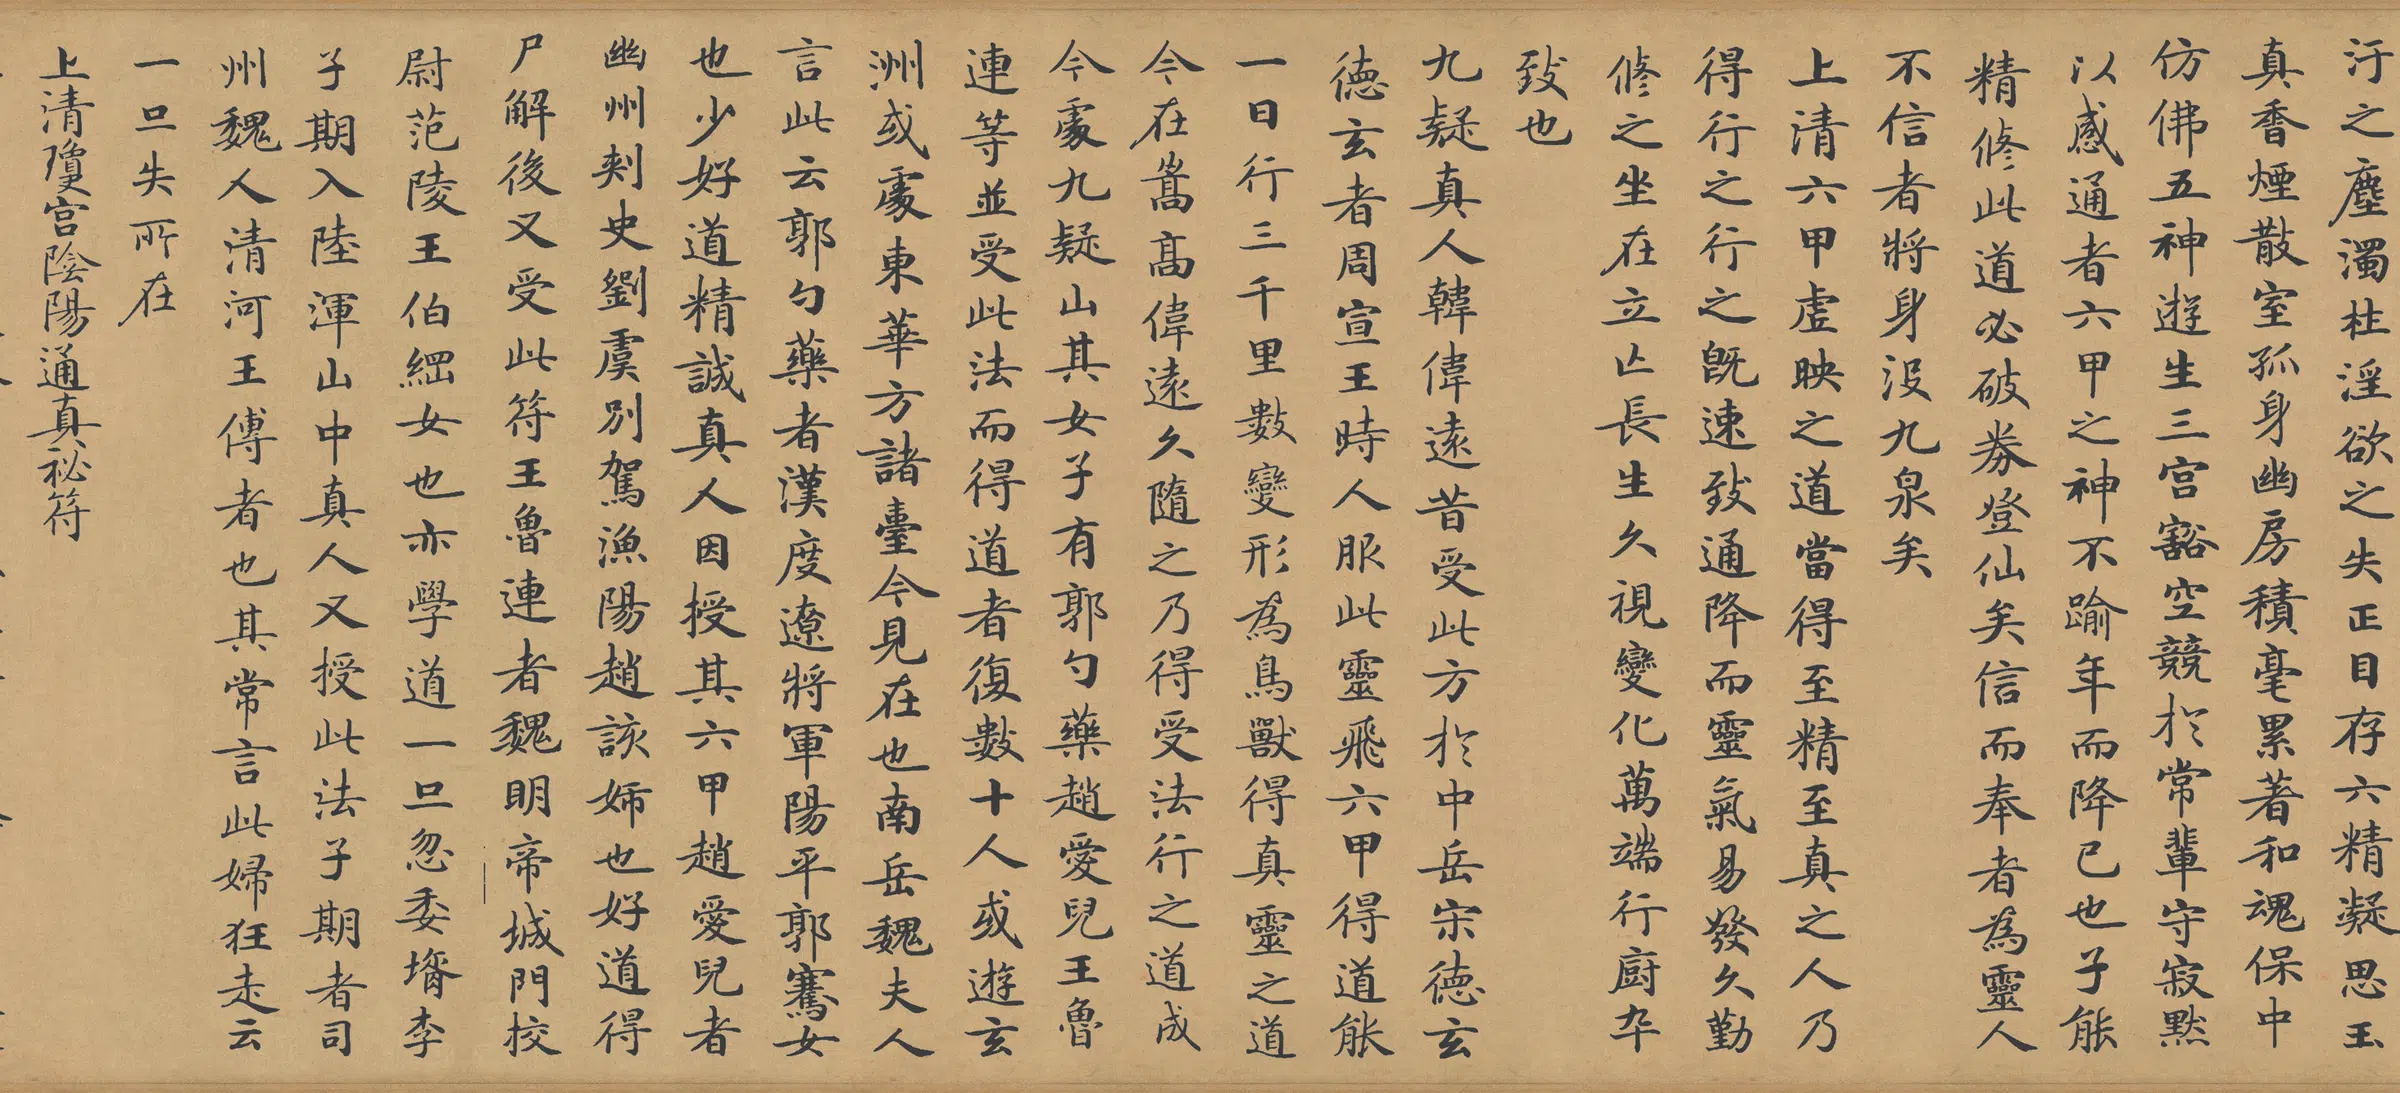 汙之塵濁杜淫欲之失正目存六精凝思玉
真香煙散室孤身幽房積毫累著和魂保中
仿佛五神遊生三宮豁空競於常輩守寂默
以感通者六甲之神不踰年而降已也子能
精修此道必破券登仙矣信而奉者為靈人
不信者將身沒九泉矣
上清六甲虛映之道當得至精至真之人乃
得行之行之既速致通降而靈氣易發久勤
修之坐在立亡長生久視變化萬端行廚卒
致也
九疑真人韓偉遠昔受此方於中岳宋德玄
德玄者周宣王時人服此靈飛六甲得道能
一日行三千里數變形為鳥獸得真靈之道
今在嵩高偉遠久隨之乃得受法行之道成
今處九疑山其女子有郭勺藥趙愛兒王魯
連等並受此法而得道者復數十人或遊玄
洲或處東華方諸臺今見在也南岳魏夫人
言此云郭勺藥者漢度遼將軍陽平郭騫女
也少好道精誠真人因授其六甲趙愛兒者
幽州刺史劉虞別駕漁陽趙該姊也好道得
尸解後又受此符王魯連者魏明帝城門校
尉范陵王伯綱女也亦學道一旦忽委壻李
子期入陸渾山中真人又授此法子期者司
州魏人清河王傅者也其常言此婦狂走云
一旦失所在
上清瓊宮陰陽通真祕符